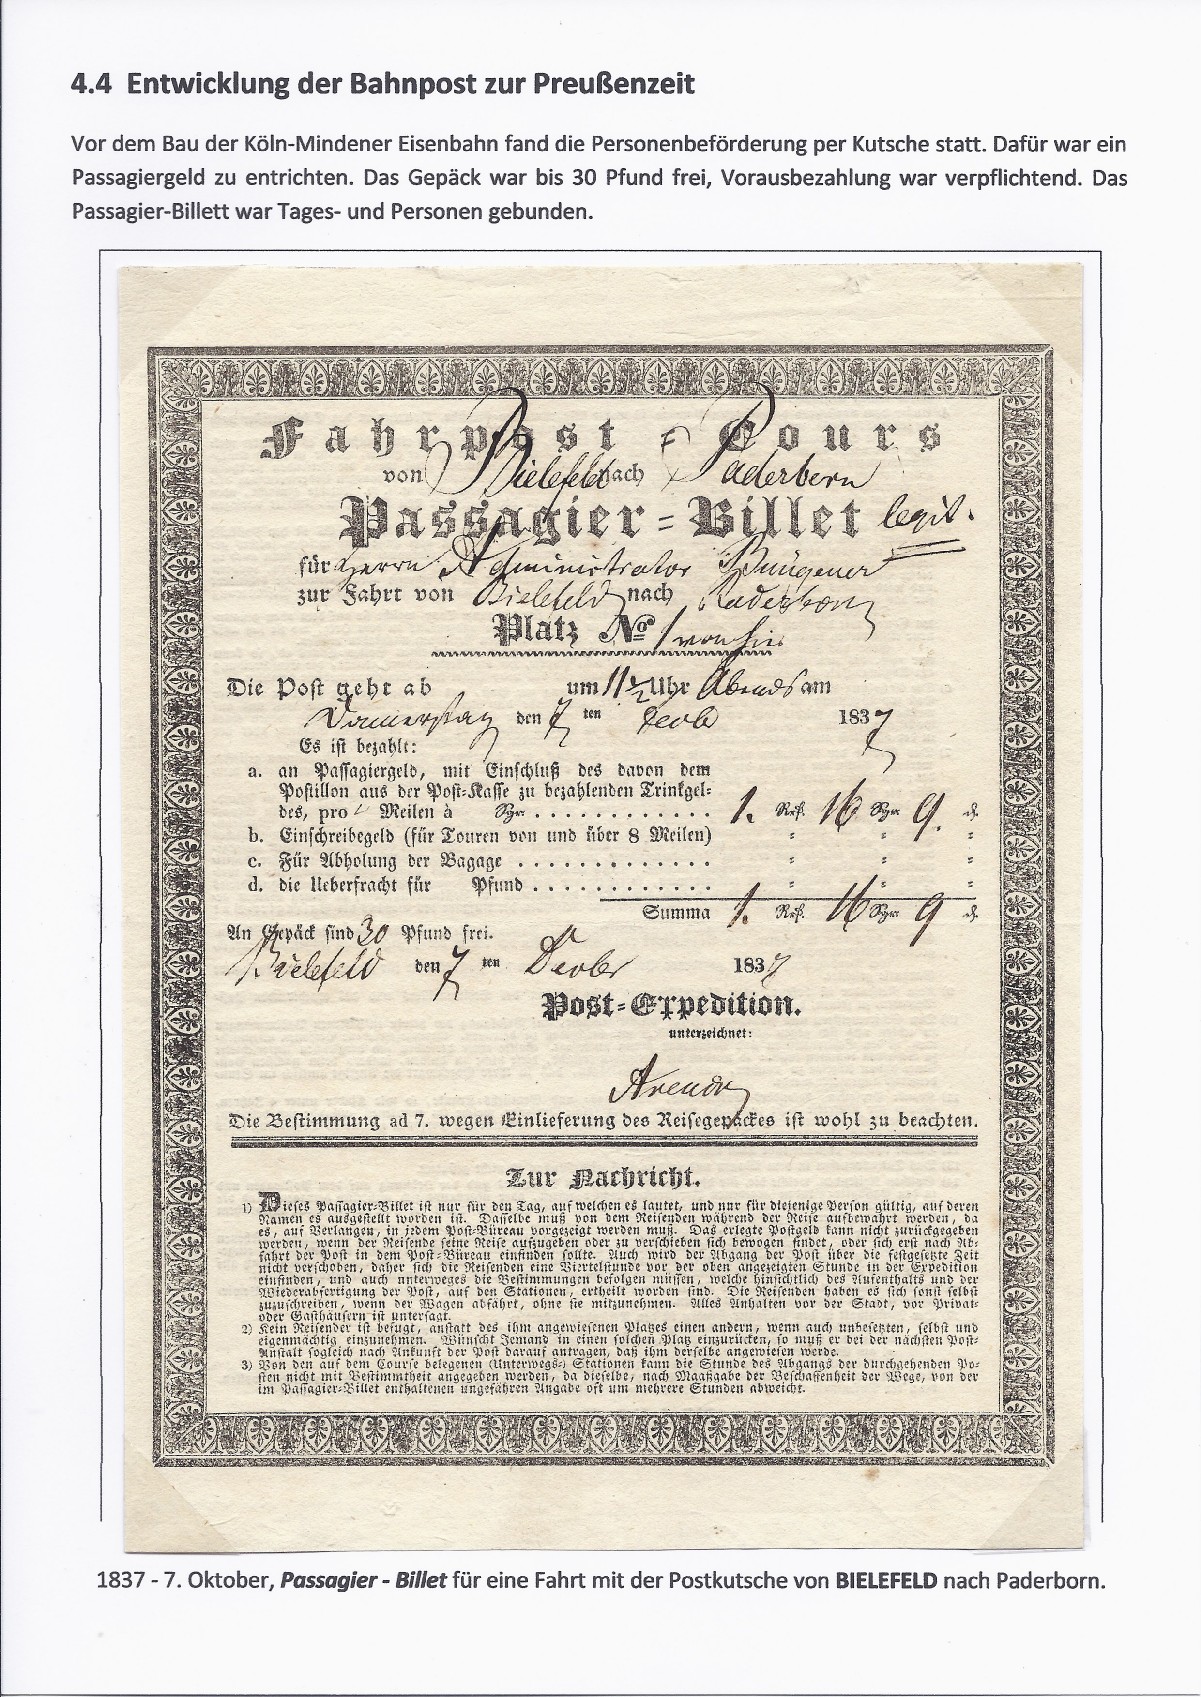 4.4 Entwicklung der Bahnpost zur Preußenzeit
Vor dem Bau der Köln-Mindener Eisenbahn fand die Personenbeförderung per Kutsche statt. Dafür war ein
Passagiergeld zu entrichten. Das Gepäck war bis 30 Pfund frei, Vorausbezahlung war verpflichtend. Das
Passagier-Billett war Tages- und Personen gebunden.
Fahrpost-Cours
von Bielefeld nach Paderborn
Passagier-Billet legit.
für Herrn Administrator
zur Fahrt von Bielefeld nach Paderborn
Platz No 1
Die Post geht ab um 11½ Uhr Abends am
Donnerstag den 7 ten 1837
Es ist bezahlt:
a. an Passagiergeld, mit Einschluß des davon dem
Postillon aus der Post-Kasse zu bezahlenden Trinkgel-
des, pro Meilen à Sgr. 1. Rtl. 16 Sgr. 9. d.
b. Einschreibegeld (für Touren von und über 8 Meilen)
c. Für Abholung der Bagage
d. die Ueberfracht für Pfund
Summa 1. Rtl. 16 Sgr. 9 d.
An Gepäck sind 30 Pfund frei.
Bielefeld den 7 ten 1837
Post-Expedition.
unterzeichnet:
Die Bestimmung ad 7. wegen Einlieferung des Reisegepäckes ist wohl zu beachten.
Zur Nachricht.
1) Dieses Passagier-Billet ist nur für den Tag, auf welchen es lautet, und nur für diejenige Person gültig, auf deren
Namen es ausgestellt worden ist. Dasselbe muß von dem Reisenden während der Reise aufbewahrt werden, da
es, auf Verlangen, in jedem Post-Büreau vorgezeigt werden muß. Das erlegte Postgeld kann nicht zurückgegeben
werden, wenn der Reisende seine Reise aufzugeben oder zu verschieben sich bewogen findet, oder sich erst nach Ab-
fahrt der Post in dem Post-Büreau einfinden sollte. Auch wird der Abgang der Post über die festgesetzte Zeit
nicht verschoben, daher sich die Reisenden eine Viertelstunde vor der oben angezeigten Stunde in der Expedition
einfinden, und auch unterweges die Bestimmungen befolgen müssen, welche hinsichtlich des Aufenthalts und der
Wiederabfertigung der Post, auf den Stationen, ertheilt worden sind. Die Reisenden haben es sich sonst selbst
zuzuschreiben, wenn der Wagen abfährt, ohne sie mitzunehmen. Alles Anhalten vor der Stadt, vor Privat-
oder Gasthäusern ist untersagt.
2) Kein Reisender ist befugt, anstatt des ihm angewiesenen Platzes einen andern, wenn auch unbesetzten, selbst und
eigenmächtig einzunehmen. Wünscht Jemand in einen solchen Platz einzurücken, so muß er bei der nächsten Post-
Anstalt sogleich nach Ankunft der Post darauf antragen, daß ihm derselbe angewiesen werde.
3) Von den auf dem Course belegenen (Unterwegs-) Stationen kann die Stunde des Abgangs der durchgehenden Po-
sten nicht mit Bestimmtheit angegeben werden, da dieselbe, nach Maaßgabe der Beschaffenheit der Wege, von der
im Passagier-Billet enthaltenen ungefähren Angabe oft um mehrere Stunden abweicht.
1837 - 7. Oktober, Passagier - Billet für eine Fahrt mit der Postkutsche von BIELEFELD nach Paderborn.